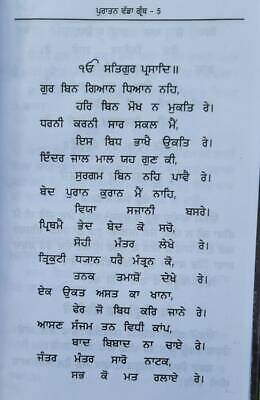 ਪੁਰਾਤਨ ਵੱਡਾ ਗ੍ਰੰਥ - 5
ੴ ਸਤਿਗੁਰ ਪ੍ਰਸਾਦਿ॥
ਗੁਰ ਬਿਨ ਗਿਆਨ ਧਿਆਨ ਨਹਿ,
ਹਰਿ ਬਿਨ ਮੋਖ ਨ ਮੁਕਤਿ ਰੇ।
ਧਰਨੀ ਕਰਨੀ ਸਾਰ ਸਕਲ ਮੈਂ,
ਇਸ ਬਿਧ ਭਾਖੈ ਉਕਤਿ ਰੇ।
ਇੰਦਰ ਜਾਲ ਮਾਲ ਯਹ ਗੁਣ ਕੀ,
ਸੁਰਗਮ ਬਿਨ ਨਹਿ ਪਾਵੈ ਰੇ।
ਬੇਦ ਪੁਰਾਨ ਕੁਰਾਨ ਮੈਂ ਨਾਹਿ,
ਵਿਯਾ ਸਜਾਨੀ ਬਸਰੇ।
ਪ੍ਰਿਥਮੈ ਭੇਦ ਬੇਦ ਕੋ ਸਚੋ,
ਸੋਹੀ ਮੰਤਰ ਲੇਖੇ ਰੇ।
ਤ੍ਰਿਕੁਟੀ ਧਯਾਨ ਧਰੈ ਮੰਤ੍ਰਨ ਕੋ,
ਤਨਕ ਤਮਾਸ਼ੋਂ ਦੇਖੇ ਰੇ।
ਏਕ ਉਕਤ ਅਸਤ ਕਾ ਖਾਨਾ,
ਫੇਰ ਜੋ ਬਿਧ ਕਰਿ ਜਾਨੇ ਰੇ।
ਆਸਣ ਸੰਜਮ ਤਨ ਵਿਧੀ ਕਾਂਪ,
ਬਾਦ ਬਿਬਾਦ ਨਾ ਚਾਏ ਰੇ।
ਜੰਤਰ ਮੰਤਰ ਸਾਰੋ ਨਾਟਕ,
ਸਭ ਕੋ ਮਤ ਰਲਾਏ ਰੇ।